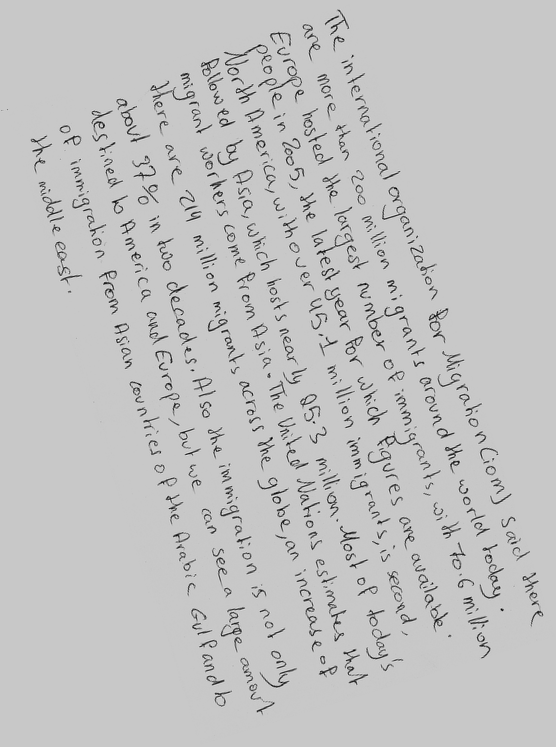 The international organization for Migration (iom) said there
are more than 200 million migrants around the world today.
Europe hosted the largest number of immigrants, with 70.6 million
people in 2005, the latest year for which figures are available.
North America, with over 45.1 million immigrants, is second,
followed by Asia, which hosts nearly 25.3 million. Most of today's
migrant workers come from Asia. The United Nations estimates that
there are 214 million migrants across the globe, an increase of
about 37% in two decades. Also the immigration is not only
destined to America and Europe, but we can see a large amout
of immigration from Asian countries of the Arabic Gulf and to
the middle east.